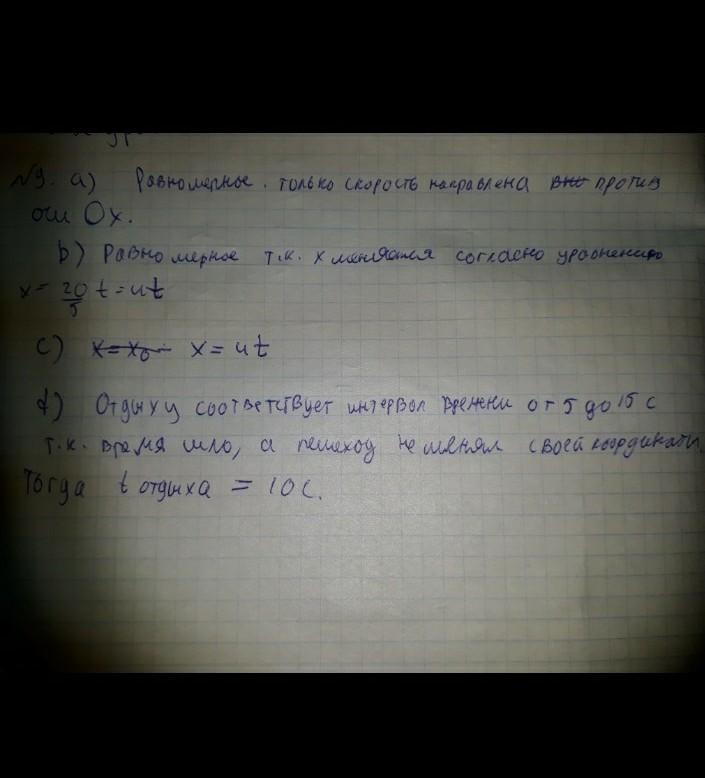 №9. a) Равномерное. только скорость направлена против
оси Ox.
b) Равномерное т.к. x меняется согласно уравнению
x = 20/5 t = 4t
c) x = x₀ x = 4t
d) Отдыху соответствует интервал времени от 5 до 15 с
т.к. время шло, а пешеход не менял своей координаты.
Тогда t отдыха = 10 с.